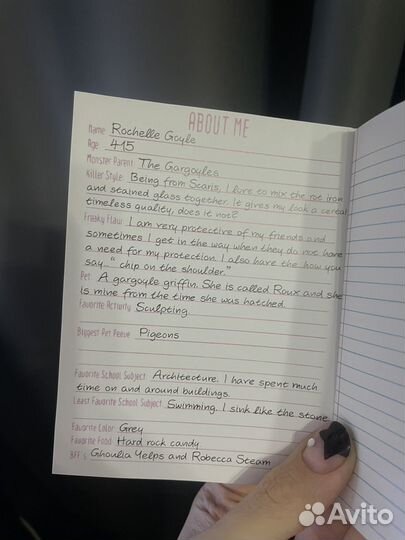 ABOUT ME
Name Rochelle Goyle
Age 415
Monster Parent The Gargoyles
Killer Style: Being from Scaris, I love to mix the rot iron
and stained glass together. It gives my look a certai
timeless quality, does it not?
Freaky Flaw: I am very protective of my friends and
sometimes I get in the way when they do not have
a need for my protection. I also have the how you
say..." chip on the shoulder."
Pet A gargoyle griffin. She is called Roux and she
is mine from the time she was hatched.
Favorite Activity Sculpting
Biggest Pet Peeve Pigeons
Favorite School Subject Architecture. I have spent much
time on and around buildings.
Least Favorite School Subject Swimming. I sink like the stone
Favorite Color: Grey
Favorite Food Hard rock candy
BFF's Ghoulia Yelps and Robecca Steam
Avito